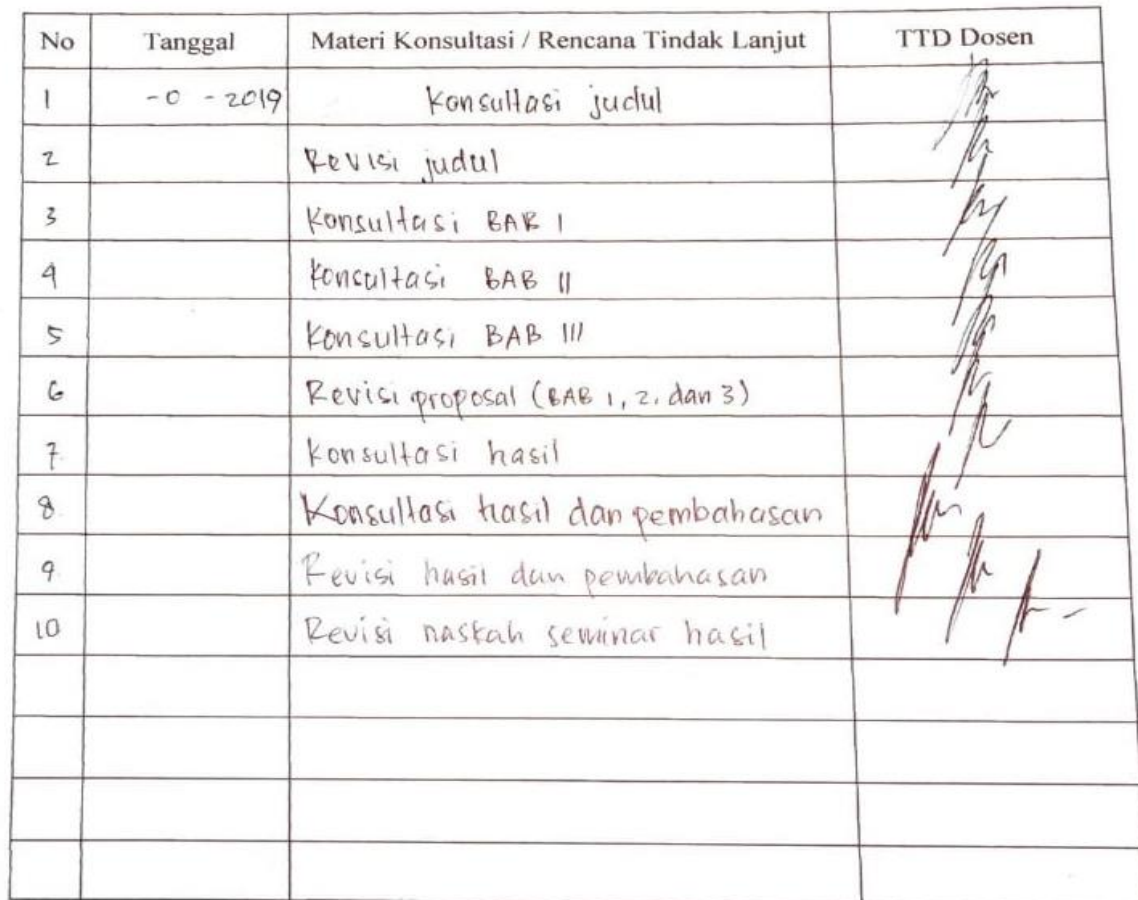 No Tanggal Materi Konsultasi / Rencana Tindak Lanjut TTD Dosen
1 -0 - 2019 Konsultasi judul
2 Revisi judul
3 Konsultasi BAB I
4 Konsultasi BAB II
5 Konsultasi BAB III
6 Revisi proposal (BAB 1, 2. dan 3)
7. Konsultasi hasil
8. Konsultasi hasil dan pembahasan
9. Revisi hasil dan pembahasan
10 Revisi naskah seminar hasil